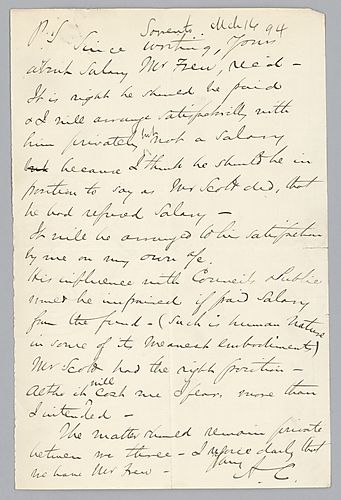 Sorrento. Mch 14 94
P.S Since writing, Yours
about Salary Mr Frew, rec'd -
It is right he should be paid
& I will arrange satisfactorily with
him privately but not a salary
because I think he should be in
position to say as Mr Scott did, that
he had refused Salary -
It will be arranged to his satisfaction
by me on my own a/c.
His influence with Councils & Public
must be impaired if paid Salary
from the fund - (Such is human Nature
in some of its meanest embodiments)
Mr Scott had the right position -
Altho it will cost me I fear, more than
I intended -
The matter should remain private
between us three - I rejoice daily that
we have Mr Frew -
Yours A. C.